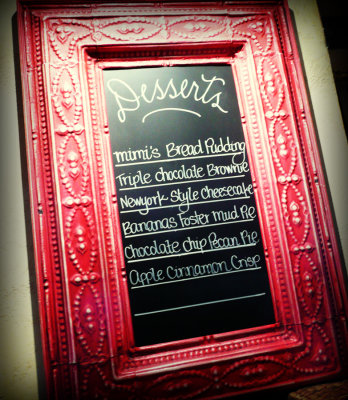 Desserts
mimi's Bread Pudding
Triple chocolate Brownie
Newyork Style Cheesecake
Bananas Foster mud Pie
Chocolate chip Pecan Pie
Apple Cinnamon Crisp